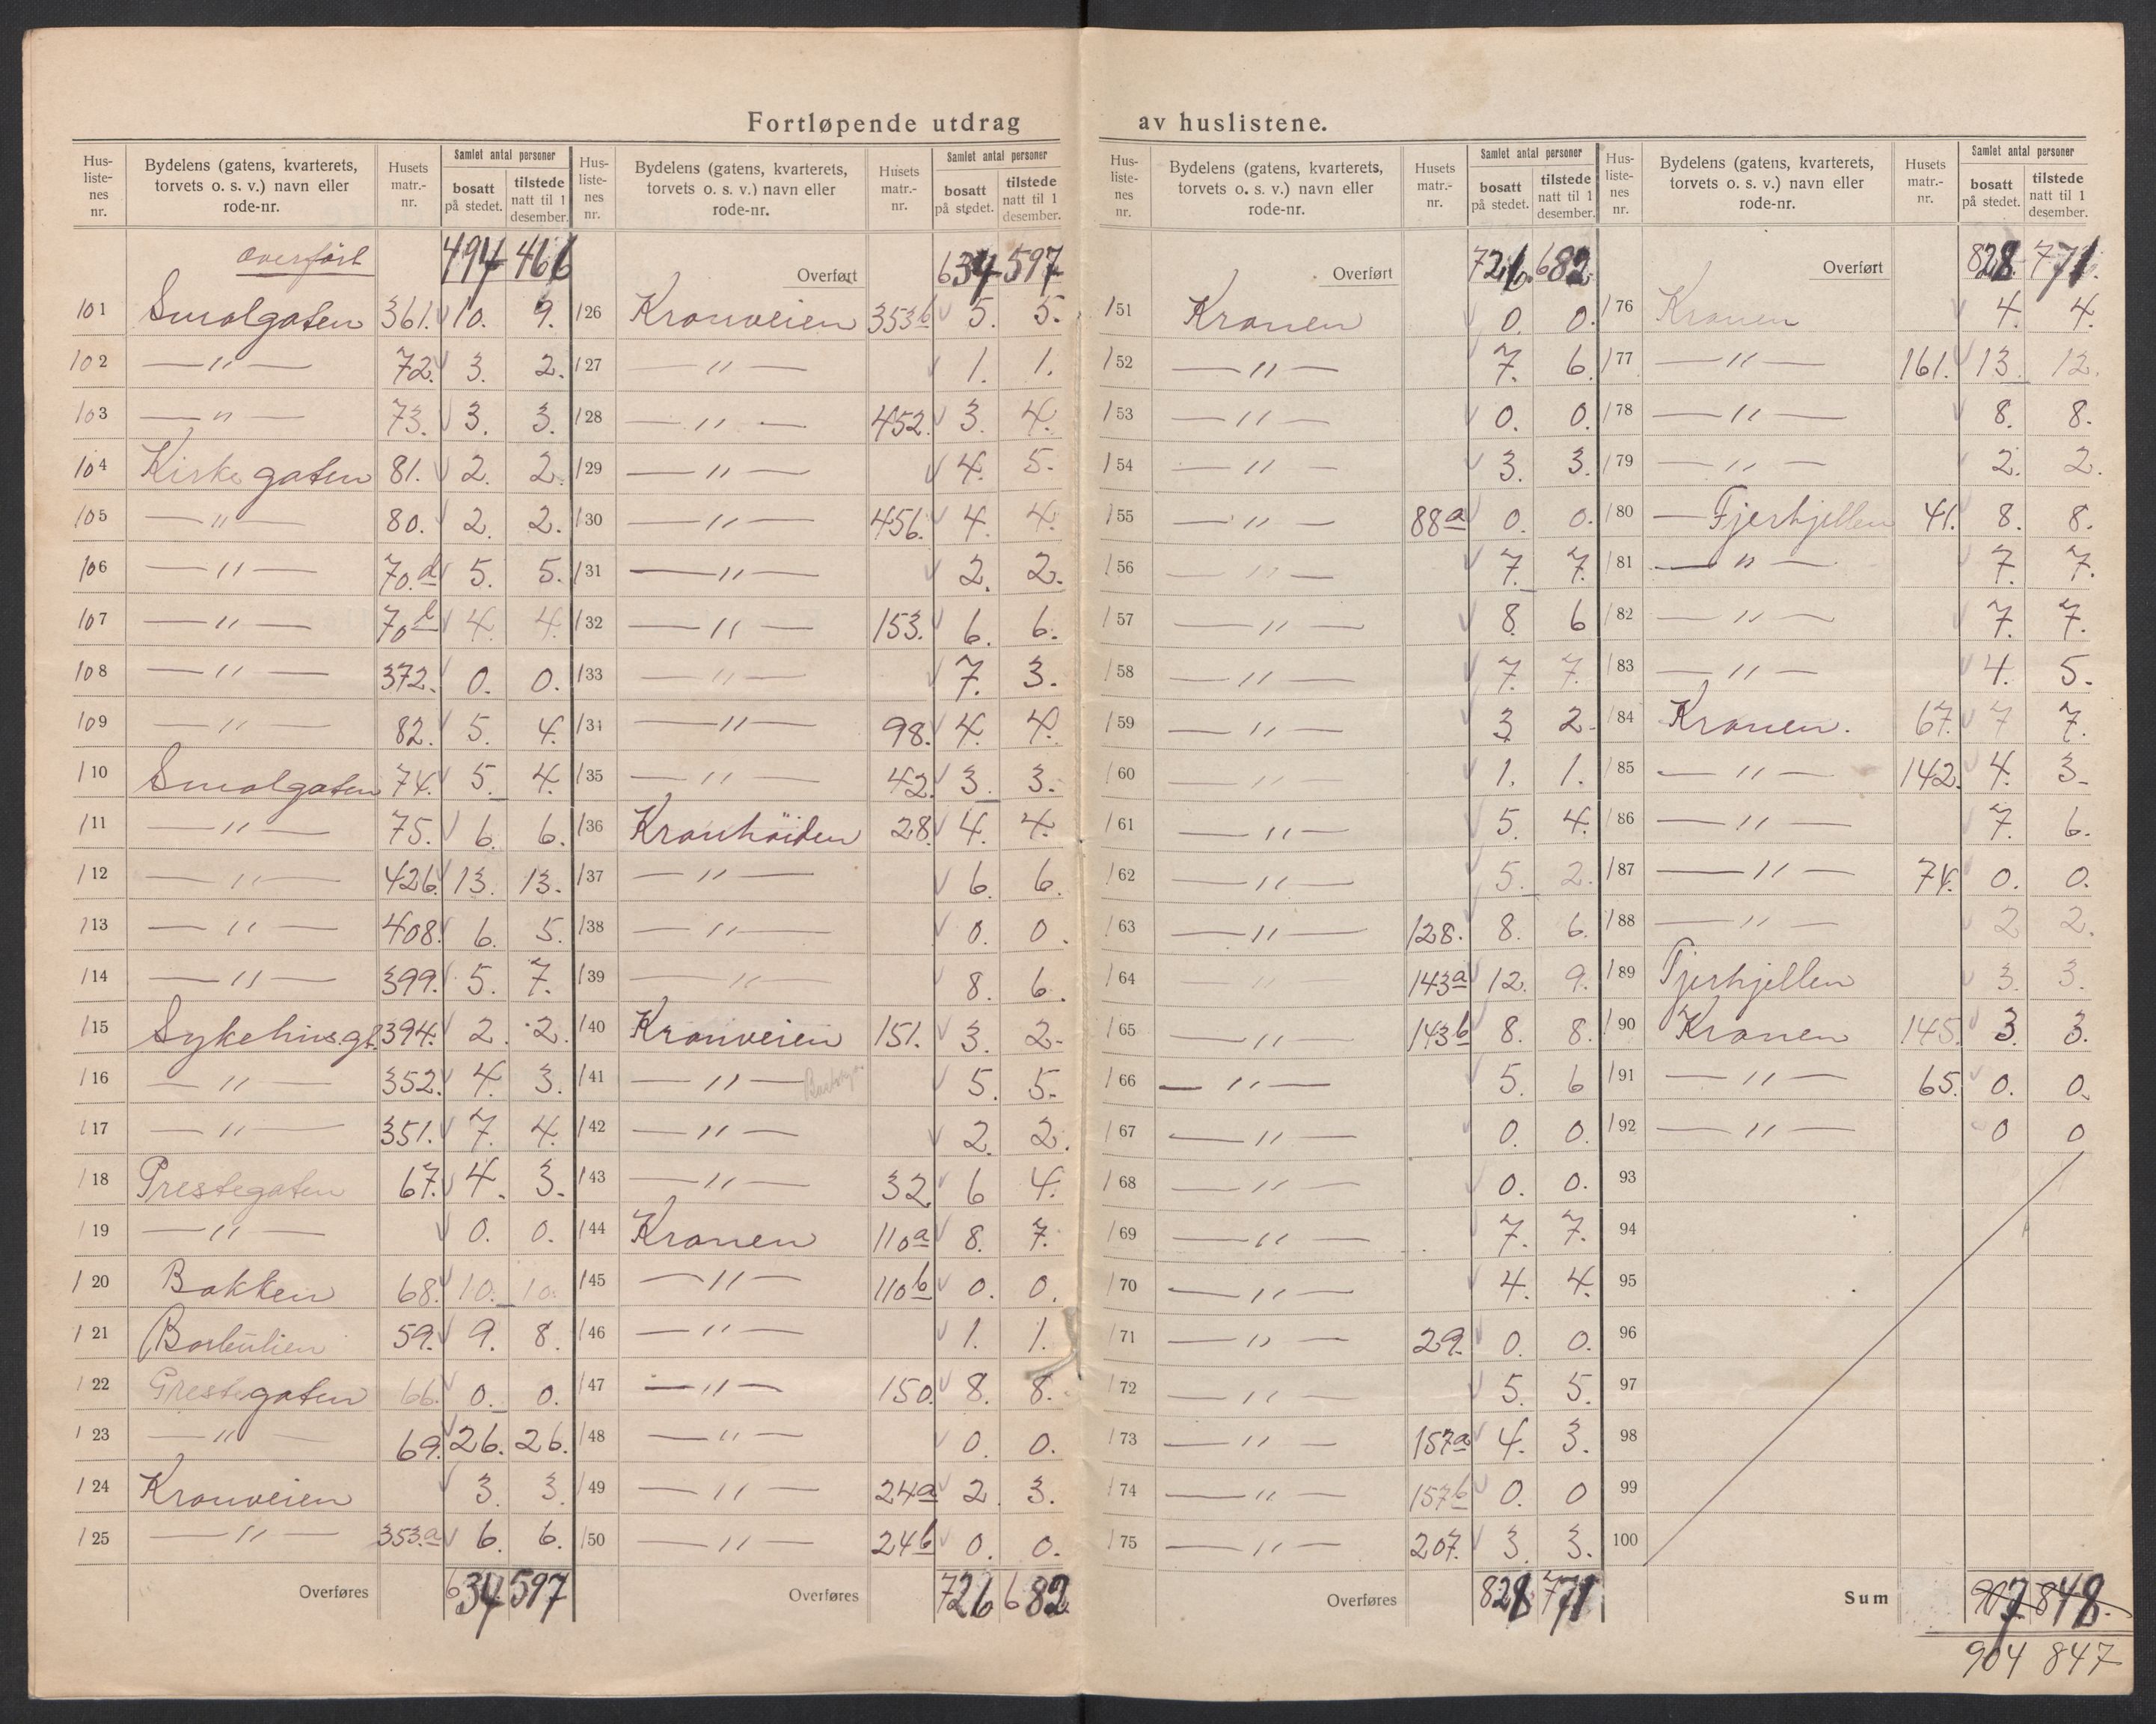 Fortløpende utdrag av huslistene.
Hus-listenes nr. Bydelens (gatens, kvarterets, torvets o. s. v.) navn eller rode-nr. Husets matr.-nr. Samlet antal personer bosatt på stedet. tilstede natt til 1 desember.
overført 494 466
101 Smalgaten 361. 10. 9.
102 —"— 72. 3. 2.
103 —"— 73. 3. 3.
104 Kirkegaten 81. 2. 2.
105 —"— 80. 2. 2.
106 —"— 70.a 5. 5.
107 —"— 70b 4. 4.
108 —"— 372. 0. 0.
109 —"— 82. 5. 4.
110 Smalgaten 74. 5. 4.
111 —"— 75. 6. 6.
112 —"— 426. 13. 13.
113 —"— 408. 6. 5.
114 —"— 399. 5. 7.
115 Sykehusgt. 394. 2. 2.
116 —"— 352. 4. 3.
117 —"— 351. 7. 4.
118 Prestegaten 67. 4. 3.
119 —"— 0. 0.
120 Bakken 68. 10. 10.
121 59. 9. 8.
122 Prestegaten 66. 0. 0.
123 —"— 69. 26. 26.
124 Kranveien 3. 3.
125 —"— 353.a 6. 6.
Overføres 634 597
Hus-listenes nr. Bydelens (gatens, kvarterets, torvets o. s. v.) navn eller rode-nr. Husets matr.-nr. Samlet antal personer bosatt på stedet. tilstede natt til 1 desember.
Overført 634 597
126 Kranveien 353b 5. 5.
127 —"— 1. 1.
128 —"— 452. 3. 4.
129 —"— 4. 5.
130 —"— 456. 4. 4.
131 —"— 2. 2.
132 —"— 153. 6. 6.
133 —"— 7. 3.
134 —"— 98. 4. 4.
135 —"— 42. 3. 3.
136 Kranhöiden 28. 4. 4.
137 —"— 6. 6.
138 —"— 0. 0.
139 —"— 8. 6.
140 Kranveien 151. 3. 2.
141 —"— 5. 5.
142 —"— 2. 2.
143 —"— 32. 6 4.
144 Kranen 110a 8. 7.
145 —"— 110b 0. 0.
146 —"— 1. 1.
147 —"— 150. 8. 8.
148 —"— 0. 0.
149 —"— 24a 2. 3.
150 —"— 24b 0. 0.
Overføres 726 682
Hus-listenes nr. Bydelens (gatens, kvarterets, torvets o. s. v.) navn eller rode-nr. Husets matr.-nr. Samlet antal personer bosatt på stedet. tilstede natt til 1 desember.
Overført 726. 682.
151 Kranen 0. 0.
152 —"— 7. 6.
153 —"— 0. 0.
154 —"— 3. 3.
155 —"— 88a 0. 0.
156 —"— 7. 7.
157 —"— 8. 6
158 —"— 7. 7.
159 —"— 3 2.
160 —"— 1. 1.
161 —"— 5. 4.
162 —"— 5. 2.
163 —"— 128. 8. 6.
164 —"— 143a 12. 9.
165 —"— 143b 8. 8.
166 —"— 5. 6
167 —"— 0. 0.
168 —"— 0. 0.
169 —"— 7. 7.
170 —"— 4. 4.
171 —"— 29. 0. 0.
172 —"— 5. 5.
173 —"— 157a 4. 3.
174 —"— 157b 0. 0
175 —"— 207. 3. 3.
Overføres 828 771
Hus-listenes nr. Bydelens (gatens, kvarterets, torvets o. s. v.) navn eller rode-nr. Husets matr.-nr. Samlet antal personer bosatt på stedet. tilstede natt til 1 desember.
Overført 828. 771.
176 Kranen 4. 4.
177 —"— 161. 13. 12.
178 —"— 8. 8.
179 —"— 2. 2.
180 —Tjerhjellen 41. 8. 8.
181 —"— 7. 7.
182 —"— 7. 7.
183 —"— 4. 5.
184 Kranen. 67. 7 7.
185 —"— 142. 4. 3.
186 —"— 7. 6.
187 —"— 74. 0. 0.
188 —"— 2 2.
189 Tjerhjellen 3. 3.
190 Kranen 145. 3. 3.
191 —"— 65. 0. 0.
192 —"— 0 0
93
94
95
96
97
98
99
100
Sum 907. 848.
904 847